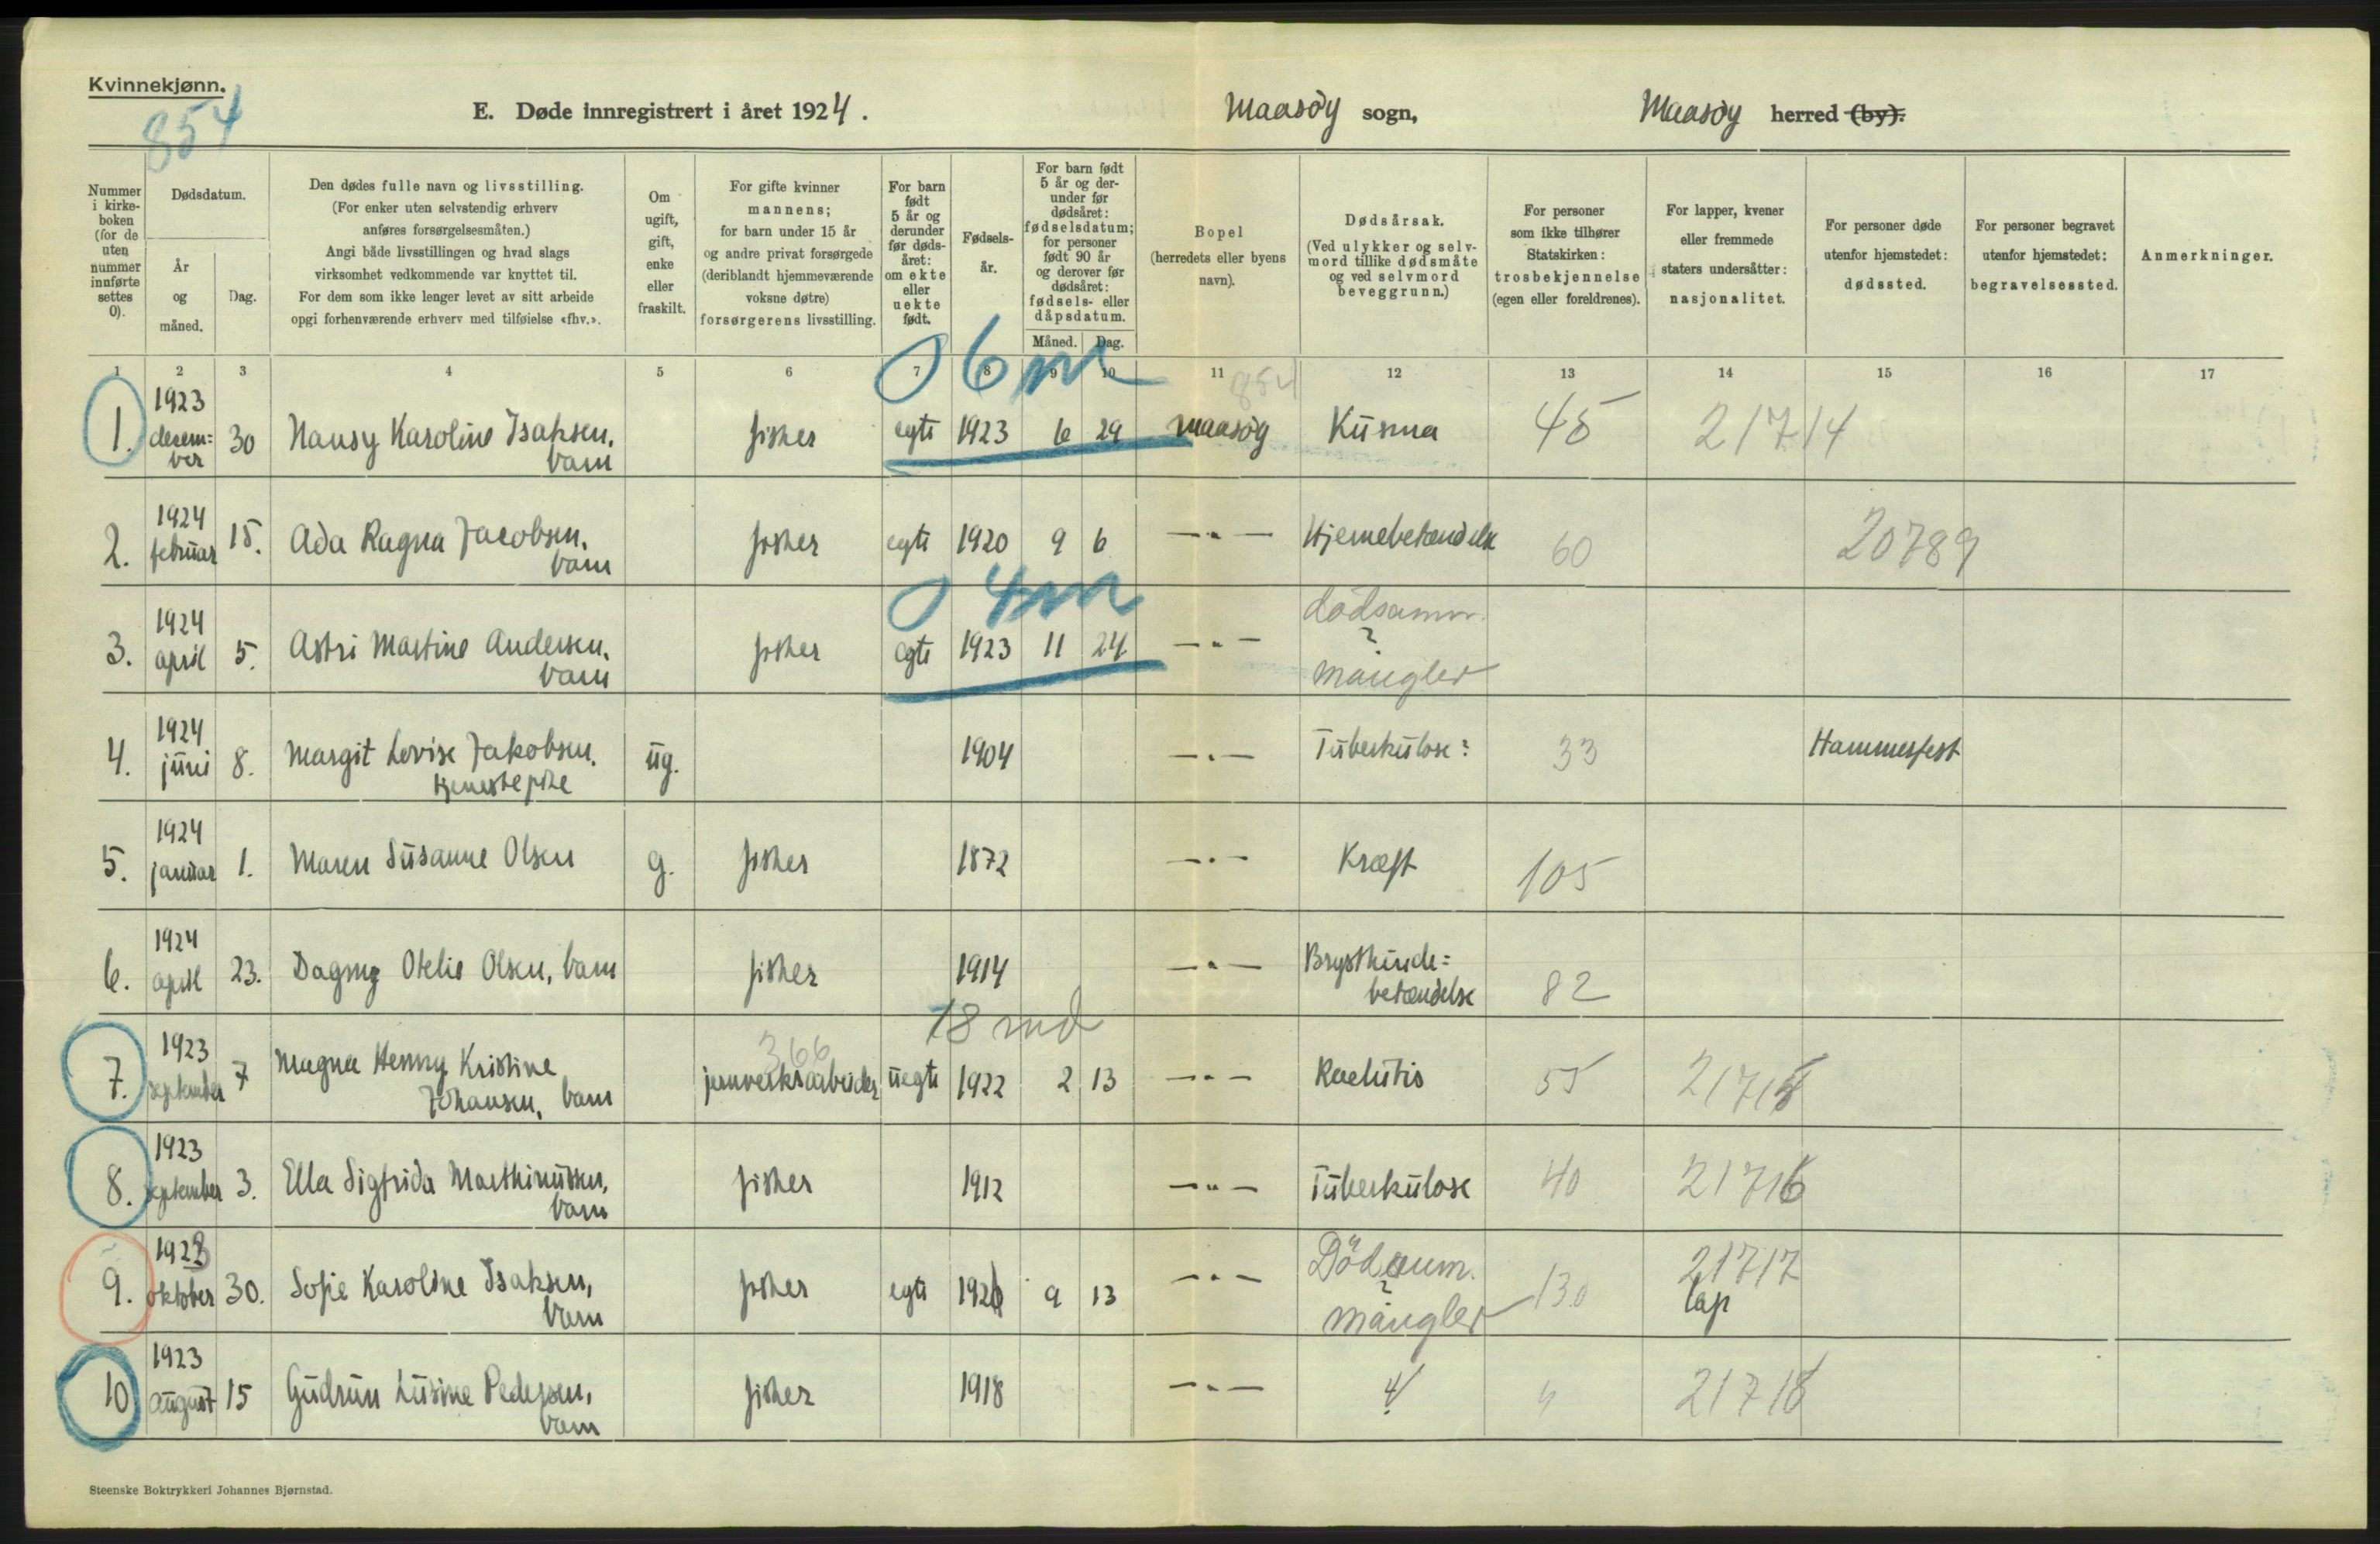 Kvinnekjønn.
854
E. Døde innregistrert i året 1924.
Maasøy sogn,
Maasøy herred (by).
Nummer i kirkeboken (for de uten nummer innførte settes 0).
Dødsdatum.
År og måned.
Dag.
Den dødes fulle navn og livsstilling.
(For enker uten selvstendig erhverv
anføres forsørgelsesmåten.)
Angi både livsstillingen og hvad slags
virksomhet vedkommende var knyttet til.
For dem som ikke lenger levet av sitt arbeide
opgi forhenværende erhverv med tilføielse «fhv.».
Om
ugift,
gift,
enke
eller
fraskilt.
For gifte kvinner
mannens;
for barn under 15 år
og andre privat forsørgede
(deriblandt hjemmeværende
voksne døtre)
forsørgerens livsstilling.
For barn
født
5 år og
derunder
før døds-
året:
om ekte
eller
uekte
født.
Fødsels-
år.
For barn født
5 år og der-
under før
dødsåret:
fødselsdatum;
for personer
født 90 år
og derover før
dødsåret:
fødsels- eller
dåpsdatum.
Måned. Dag.
Bopel
(herredets eller byens
navn).
Dødsårsak.
(Ved ulykker og selv-
mord tillike dødsmåte
og ved selvmord
beveggrunn.)
For personer
som ikke tilhører
Statskirken:
trosbekjennelse
(egen eller foreldrenes).
For lapper, kvener
eller fremmede
staters undersåtter:
nasjonalitet.
For personer døde
utenfor hjemstedet:
dødssted.
For personer begravet
utenfor hjemstedet:
begravelsessted.
Anmerkninger.
1 2 3 4 5 6 7 8 9 10 11 12 13 14 15 16 17
0 6 m
854
1. 1923 desem=ber 30 Nansy Karoline Isaksen, barn fisker egte 1923 6 29 Maasøy Kusma 45 21714
2. 1924 februar 15. Ada Ragna Jacobsen, barn fisker egte 1920 9 6 —„— Hjernebetændelse 60 20789
0 4 m
3. 1924 april 5. Astri Martine Andersen, barn fisker egte 1923 11 24 —„— dødsanm. ? mangler
4. 1924 juni 8. Margit Lovise Jakobsen, tjenestepike ug. 1904 —„— Tuberkulose? 33 Hammerfest
5. 1924 januar 1. Maren Susanne Olsen g. fisker 1872 —„— Kræft 105
6. 1924 april 23. Dagny Otelie Olsen, barn fisker 1914 —„— Brysthinde=betændelse 82
18 md
366
7. 1923 september 7 Magna Henny Kristine Johansen, barn jernverksarbeider uegte 1922 2 13 —„— Rachitis 55 21715
8. 1923 september 3. Ella Sigfrida Marthinussen, barn fisker 1912 —„— Tuberkulose 40 21716
9. 1923 oktober 30. Sofie Karoline Isaksen, barn fisker egte 192 9 13 —„— Dödsanm. ? mangler 130 21717 lap
10 1923 august 15 Gudrun Lusine Pedersen, barn fisker 1918 —„— 21718
Steenske Boktrykkeri Johannes Bjørnstad.